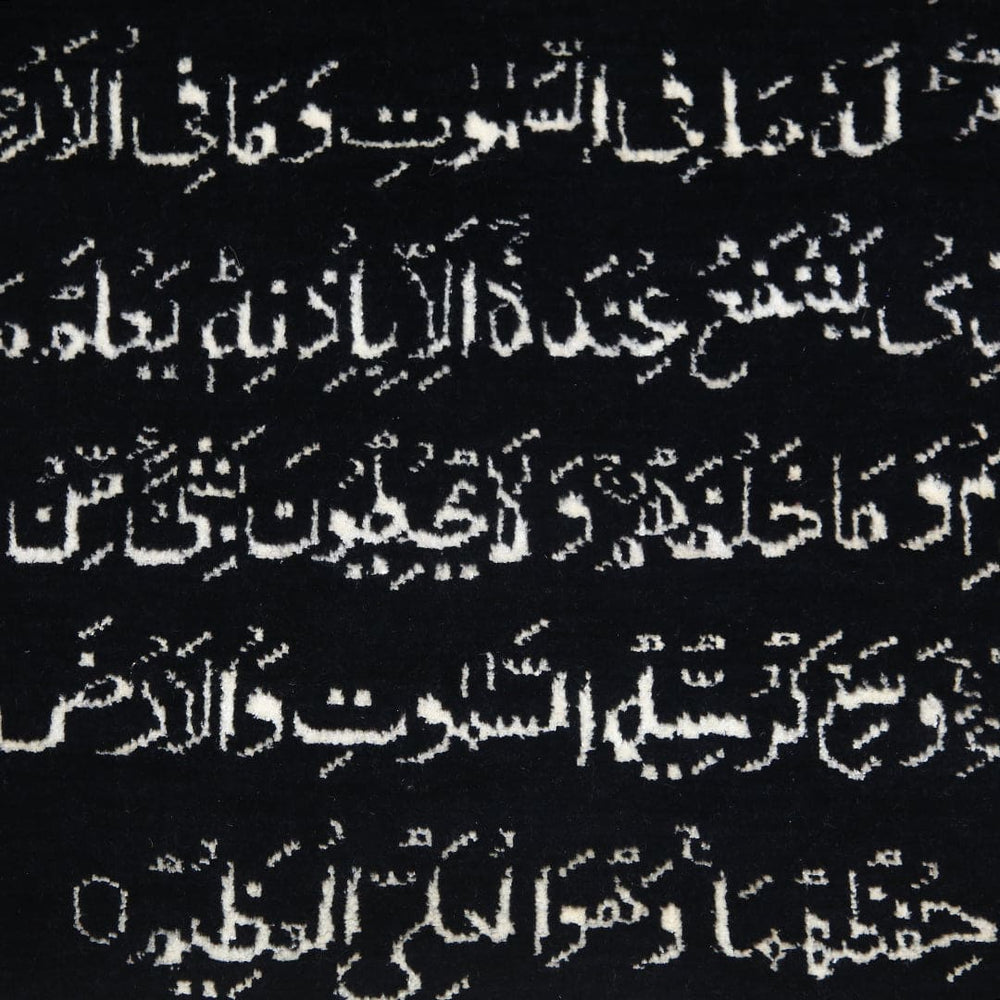 لَهُ مَا فِى السَّمٰوٰتِ وَمَا فِى الْاَرْضِ
ذِى يَشْفَعُ عِنْدَهٗ اِلَّا بِاِذْنِهٖ يَعْلَمُ
وَمَا خَلْفَهُمْ وَلَا يُحِيْطُوْنَ بِشَىْءٍ مِّنْ
وَسِعَ كُرْسِيُّهُ السَّمٰوٰتِ وَالْاَرْضَ
حِفْظُهُمَا وَهُوَ الْعَلِىُّ الْعَظِيْمُ